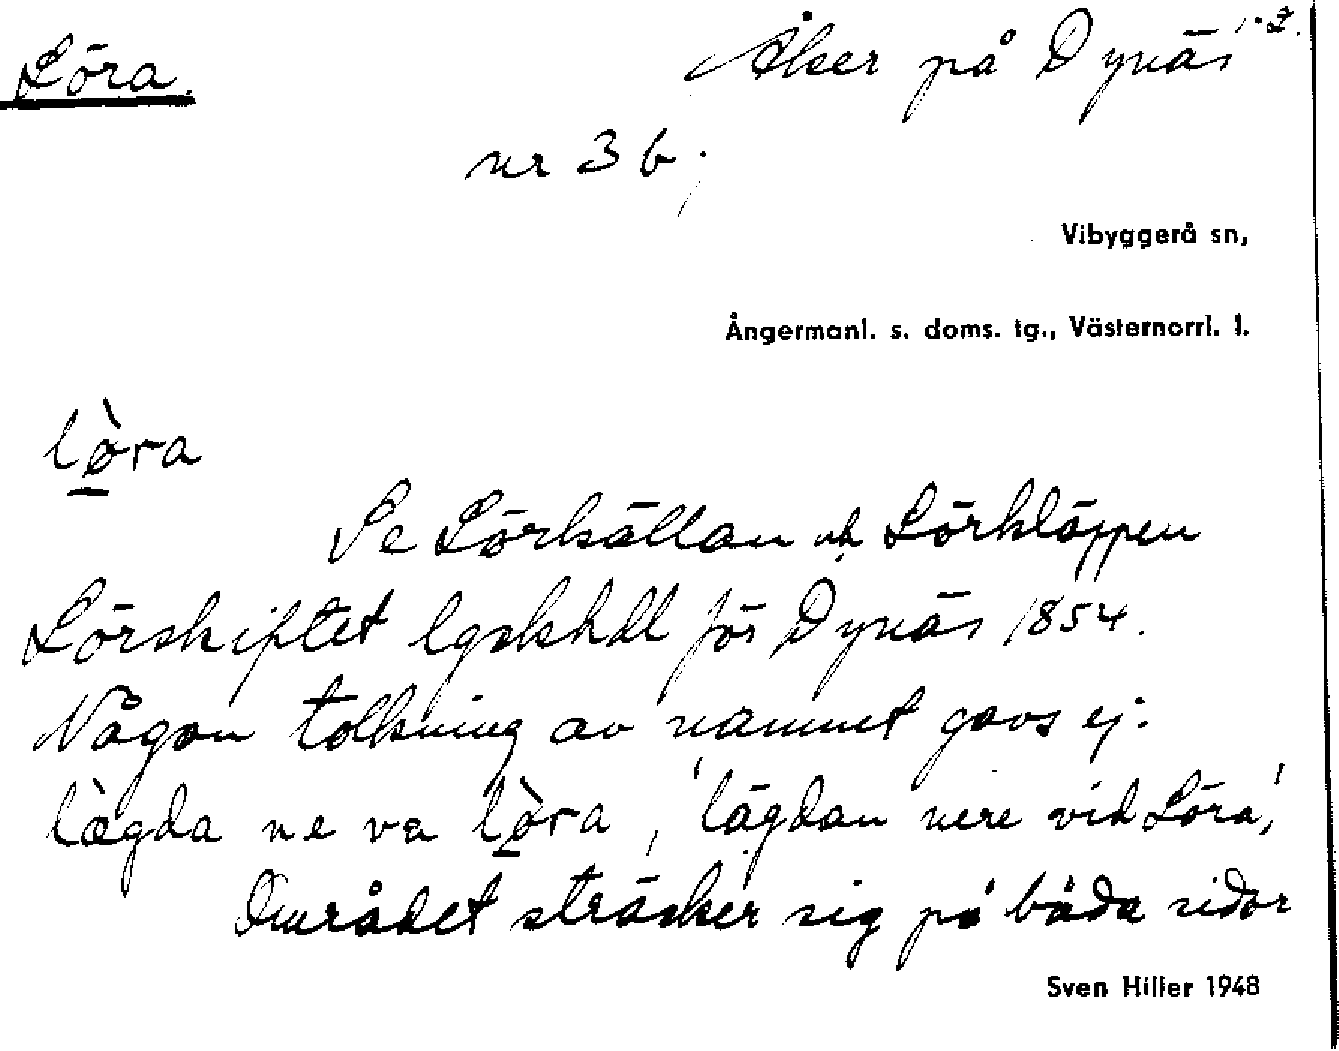 Löra. Åker på Dynäs 1-2.
nr 3 b.
Vibyggerå sn,
Ångermanl. s. doms. tg., Västernorrl. l.
lø̀ra
Se Lörkällan och Lörkläppen
Lörskiftet lgskhdl för Dynäs 1854.
Någon tolkning av namnet gavs ej.
lægda ne va lø̀ra, 'lägdan nere vid Löra',
Området sträcker sig på båda sidor
Sven Hiller 1948